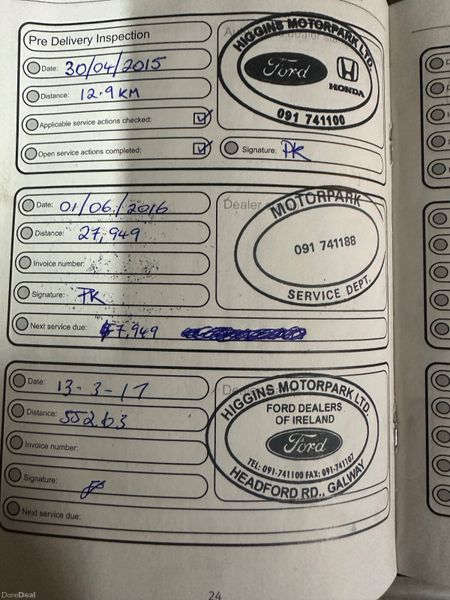 Pre Delivery Inspection
Date: 30/04/2015
Distance: 12.9 KM
Applicable service actions checked:
Open service actions completed:
HIGGINS MOTORPARK LTD.
Ford
HONDA
091 741100
Signature: PK
Date: 01/06/2016
Distance: 27,949
Invoice number:
Signature: PK
Next service due: 47,949
Dealer
MOTORPARK
091 741188
SERVICE DEPT.
Date: 13-3-17
Distance: 55263
Invoice number:
Signature:
Next service due:
HIGGINS MOTORPARK LTD.
FORD DEALERS
OF IRELAND
Ford
TEL: 091-741100 FAX: 091-741107
HEADFORD RD., GALWAY
24
DoneDeal